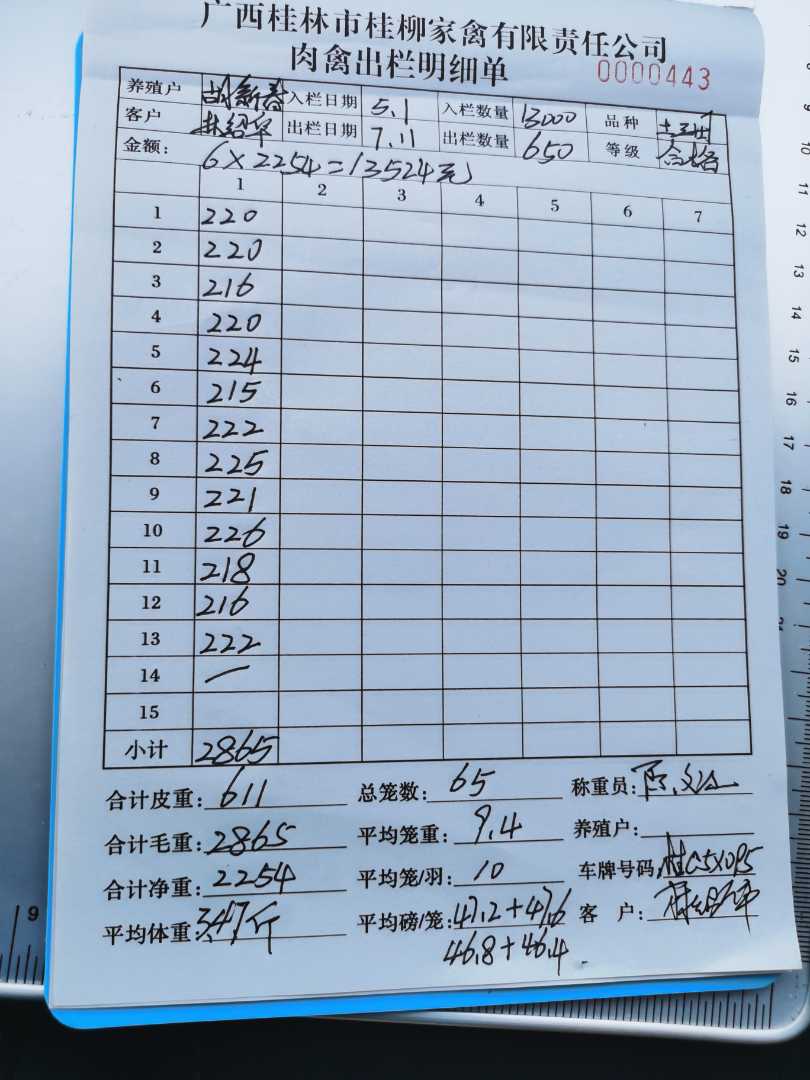 广西桂林市桂柳家禽有限责任公司
肉禽出栏明细单 0000443
养殖户 胡新春 入栏日期 5.1 入栏数量 13000 品种 土二
客户 林绍华 出栏日期 7.11 出栏数量 650 等级 合格
金额: 6×2254=13524元
1 2 3 4 5 6 7
1 220
2 220
3 216
4 220
5 224
6 215
7 222
8 225
9 221
10 226
11 218
12 216
13 222
14 一
15
小计 2865
合计皮重: 611 总笼数: 65 称重员:
合计毛重: 2865 平均笼重: 9.4 养殖户:
合计净重: 2254 平均笼/羽: 10 车牌号码: 桂C5X095
平均体重: 3.47斤 平均磅/笼: 47.2+47.6 客户: 林绍华
46.8+46.4
9
10
11
12
13
14
15
16
17
18
19
20